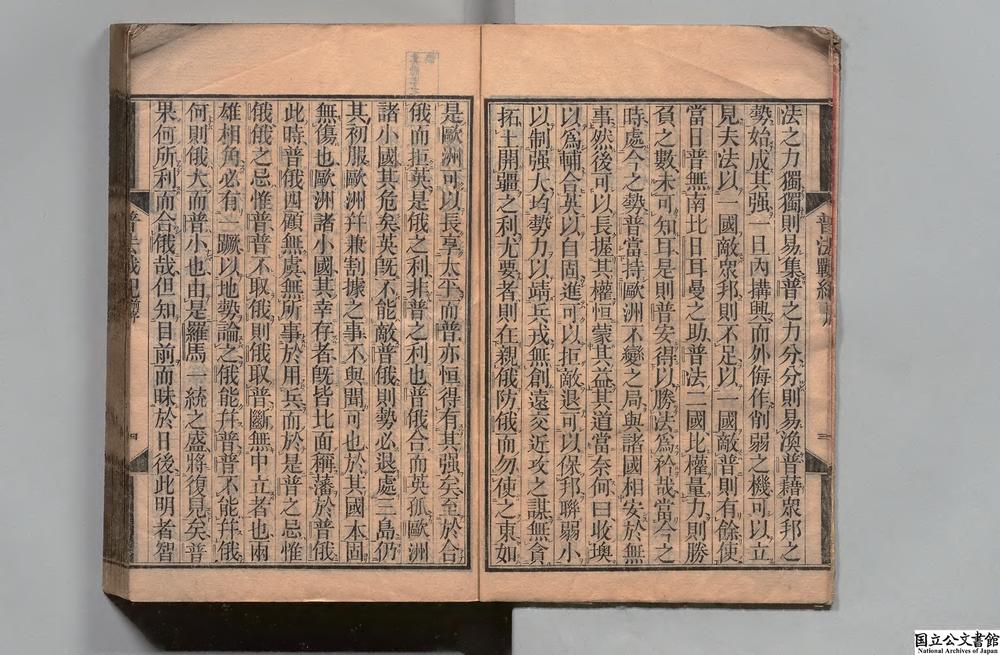 法之力獨獨則易集普之力分分則易渙普藉衆邦之
勢始成其强一日內搆興而外侮作削弱之機可以立
見夫法以一國敵衆邦則不足以一國敵普則有餘使
當日普無南北日耳曼之助普法二國比權量力則勝
負之數未可知耳是則普安得以勝法爲矜哉當今之
時處今之勢普當持歐洲不變之局與諸國相安於無
事然後可以長握其權恒蒙其益其道當奈何曰收墺
以爲輔合英以自固進可以拒敵退可以保邦聯弱小
以制强大均勢力以靖兵戎無創遠交近攻之謀無貪
拓土開疆之利尤要者則在親俄防俄而勿使之東如
是歐洲可以長享太平而普亦恒得有其强矣至於合
俄而拒英是俄之利非普之利也普俄合而英孤歐洲
諸小國其危矣英旣不能敵普俄則勢必退處三島仍
其初服歐洲幷兼割據之事不與聞可也於其國本固
無傷也歐洲諸小國其幸存者旣皆北面稱藩於普俄
此時普俄四顧無虞無所事於用兵而於是普之忌惟
俄俄之忌惟普普不取俄則俄取普斷無中立者也兩
雄相角必有一蹶以地勢論之俄能幷普普不能幷俄
何則俄大而普小也由是羅馬一統之盛將復見矣普
果何所利而合俄哉但知目前而昧於日後此明者智
普法戰紀
三
四
国立公文書館
National Archives of Japan